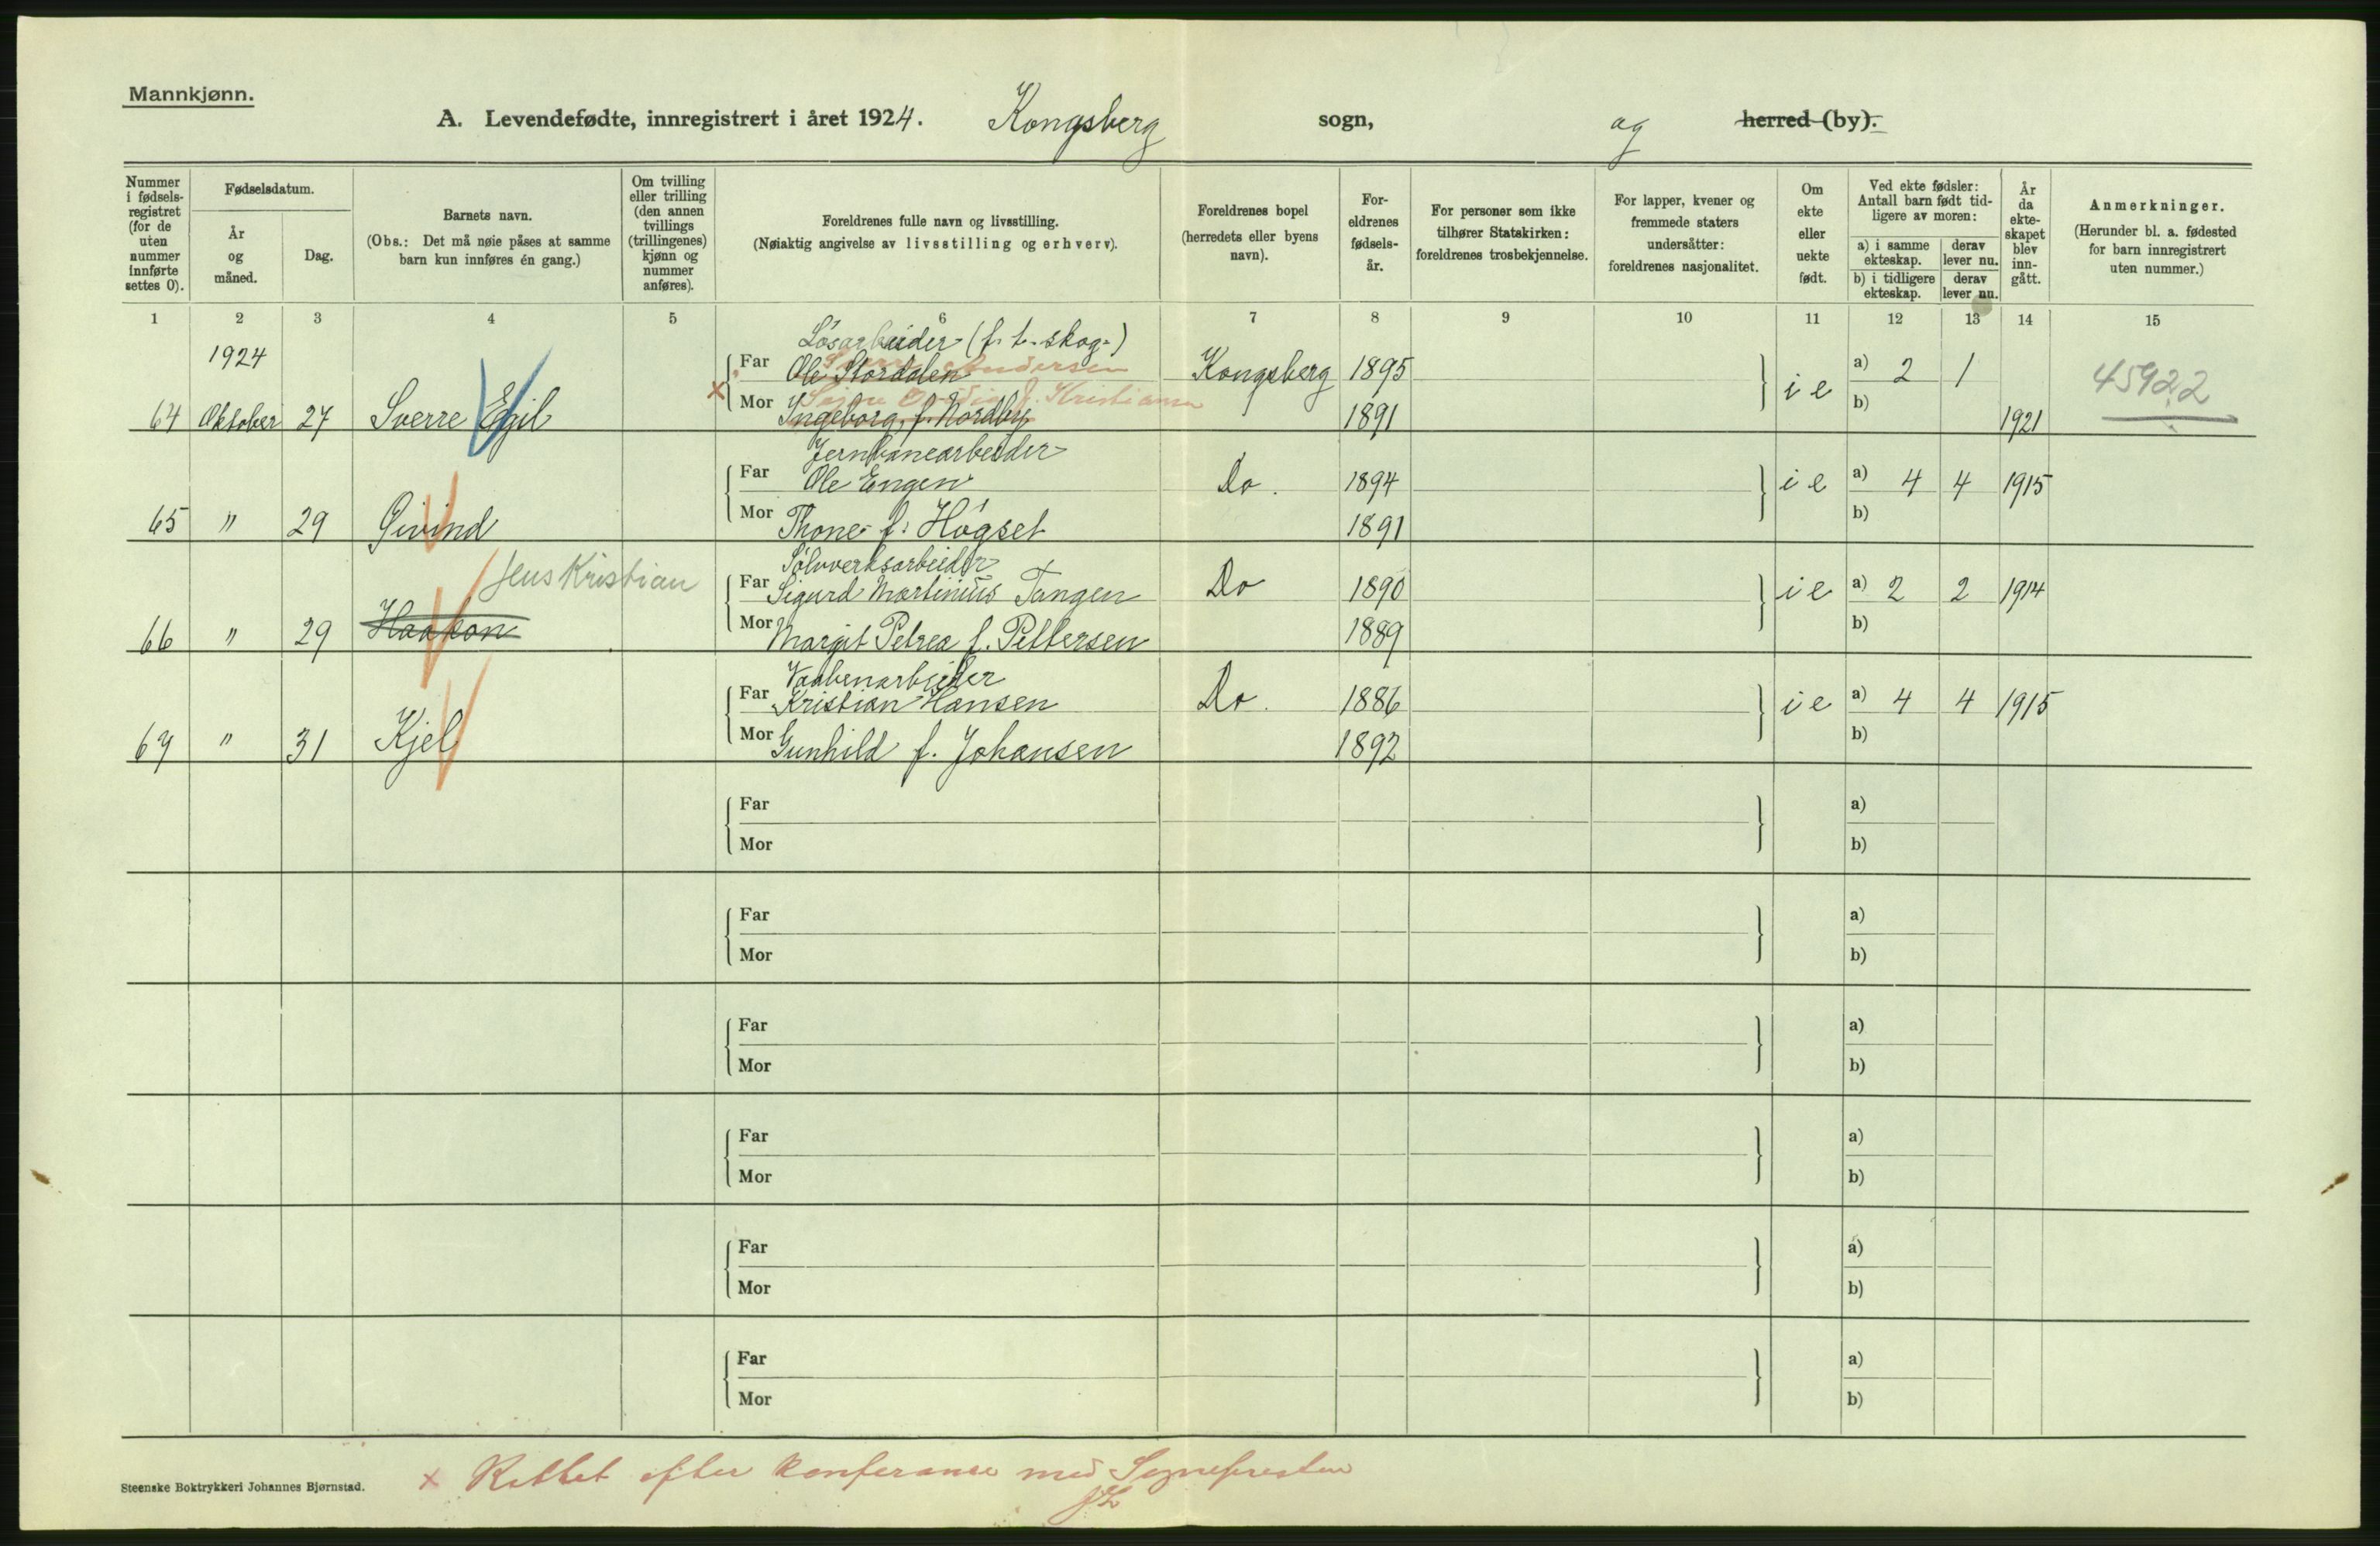 Mannkjønn.
A. Levendefødte, innregistrert i året 1924. Kongsberg sogn, og herred (by).
Nummer i fødsels-registret (for de uten nummer innførte settes 0).
Fødselsdatum.
År og måned.
Dag.
Barnets navn.
(Obs.: Det må nøie påses at samme barn kun innføres én gang.)
Om tvilling eller trilling (den annen tvillings (trillingenes) kjønn og nummer anføres).
Foreldrenes fulle navn og livsstilling.
(Nøiaktig angivelse av livsstilling og erhverv).
Foreldrenes bopel (herredets eller byens navn).
For-eldrenes fødsels-år.
For personer som ikke tilhører Statskirken: foreldrenes trosbekjennelse.
For lapper, kvener og fremmede staters undersåtter: foreldrenes nasjonalitet.
Om ekte eller uekte født.
Ved ekte fødsler: Antall barn født tid-ligere av moren:
a) i samme ekteskap. derav lever nu.
b) i tidligere ekteskap. derav lever nu.
År da ekte-skapet blev inn-gått.
Anmerkninger.
(Herunder bl. a. fødested for barn innregistrert uten nummer.)
1 2 3 4 5 6 7 8 9 10 11 12 13 14 15
1924
Løsarbeider (f. t. skog-)
Far Ole Stordalen Andersen Kongsberg 1895 a) 2 1 45922
64 Oktober 27 Sverre Egil
x Mor Ingeborg, f. Nordby f. Kristiansen 1891 i e b) 1921
Jernbanearbeider
Far Ole Engen Do. 1894 i e a) 4 4 1915
65 " 29 Øivind Mor Thone f. Høgset 1891 b)
Jens Kristian
Sølvverksarbeider
Far Sigurd Martinius Tangen Do 1890 i e a) 2 2 1914
66 " 29 Haakon Mor Margit Petrea f. Pettersen 1889 b)
Vaabenarbeider
Far Kristian Hansen Do. 1886 i e a) 4 4 1915
67 " 31 Kjel Mor Gunhild f. Johansen 1892 b)
Far a)
Mor b)
Far a)
Mor b)
Far a)
Mor b)
Far a)
Mor b)
Far a)
Mor b)
Far a)
Mor b)
Steenske Boktrykkeri Johannes Bjørnstad.
x Rettet efter konferanse med Sognepresten